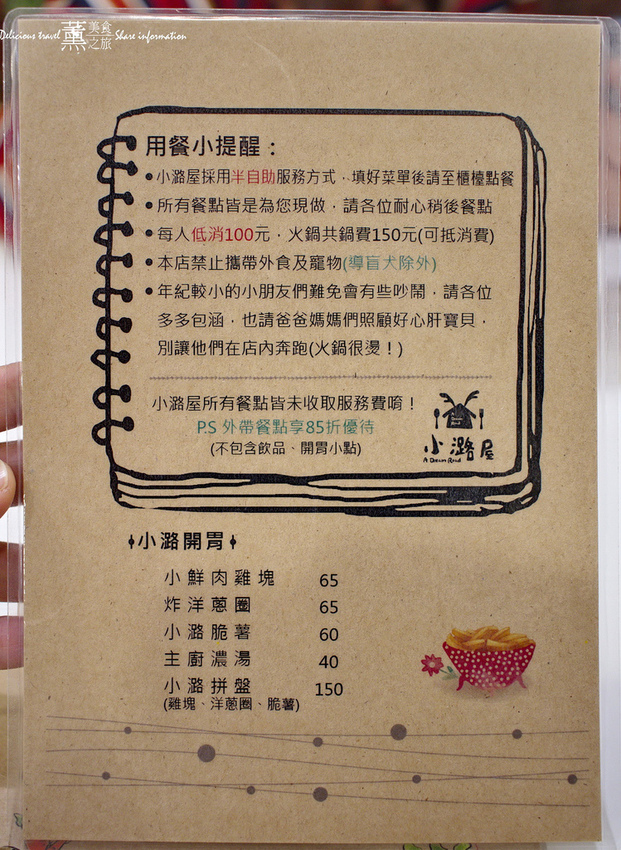 Delicious travel 薰 美食之旅 Share information
用餐小提醒：
●小潞屋採用半自助服務方式，填好菜單後請至櫃檯點餐
●所有餐點皆是為您現做，請各位耐心稍後餐點
●每人低消100元，火鍋共鍋費150元(可抵消費)
●本店禁止攜帶外食及寵物(導盲犬除外)
●年紀較小的小朋友們難免會有些吵鬧，請各位
多多包涵，也請爸爸媽媽們照顧好心肝寶貝，
別讓他們在店內奔跑(火鍋很燙！)
小潞屋所有餐點皆未收取服務費唷！
P.S 外帶餐點享85折優待
(不包含飲品、開胃小點)
小潞屋
A Dream Road
小潞開胃
小鮮肉雞塊 65
炸洋蔥圈 65
小潞脆薯 60
主廚濃湯 40
小潞拼盤 150
(雞塊、洋蔥圈、脆薯)